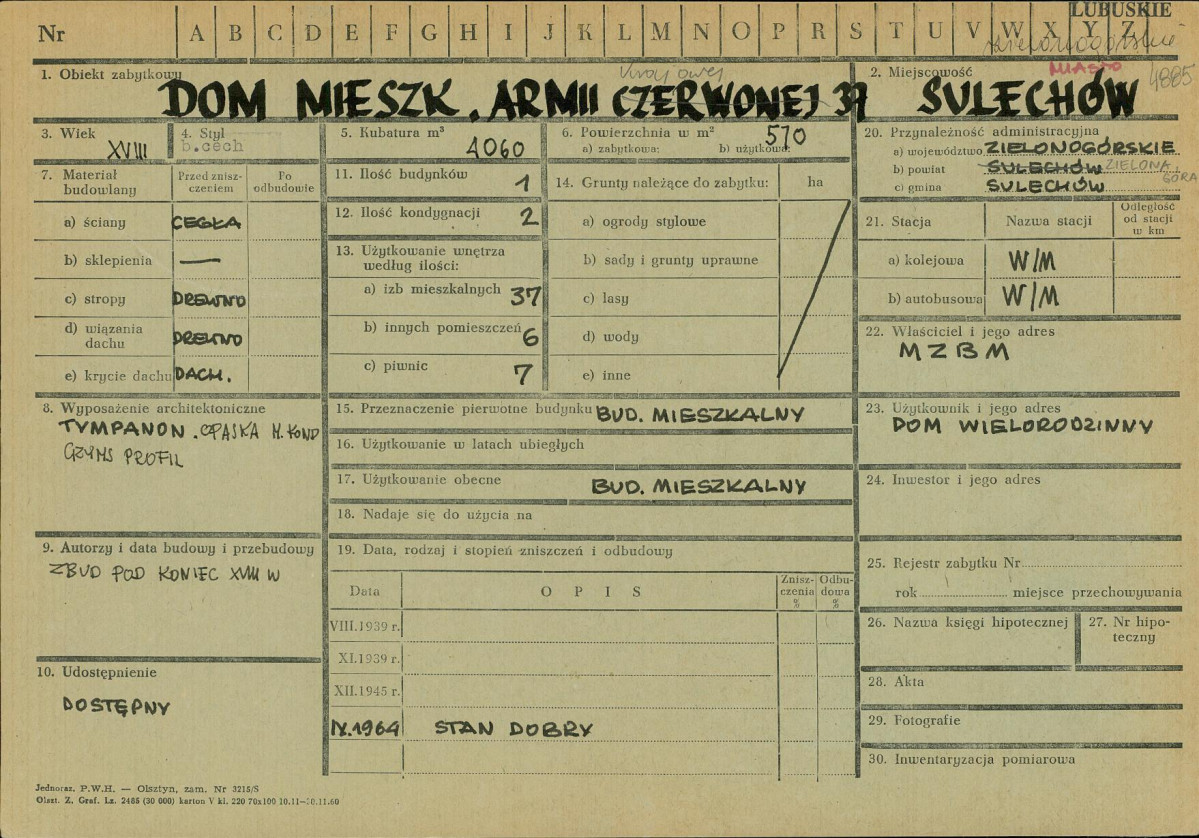 LUBUSKIE
Nr A B C D E F G H I J K L M N O P R S T U V W X Y Z
zielonogórskie
Krajowej
MIASTO
4885
1. Obiekt zabytkowy
DOM MIESZK. ARMII CZERWONEJ 37
2. Miejscowość
SULECHÓW
3. Wiek
XVIII
4. Styl
b.cech
5. Kubatura m³
4060
6. Powierzchnia w m²
570
a) zabytkowa: b) użytkowa:
7. Materiał budowlany
Przed zniszczeniem
Po odbudowie
a) ściany CEGŁA
b) sklepienia —
c) stropy DREWNO
d) wiązania dachu DREWNO
e) krycie dachu DACH.
8. Wyposażenie architektoniczne
TYMPANON. OPASKA M. KOND
GZYMS PROFIL
9. Autorzy i data budowy i przebudowy
ZBUD POD KONIEC XVIII W
10. Udostępnienie
DOSTĘPNY
11. Ilość budynków 1
12. Ilość kondygnacji 2
13. Użytkowanie wnętrza
według ilości:
a) izb mieszkalnych 37
b) innych pomieszczeń 6
c) piwnic 7
14. Grunty należące do zabytku: ha
a) ogrody stylowe
b) sady i grunty uprawne
c) lasy
d) wody
e) inne
15. Przeznaczenie pierwotne budynku BUD. MIESZKALNY
16. Użytkowanie w latach ubiegłych
17. Użytkowanie obecne BUD. MIESZKALNY
18. Nadaje się do użycia na
19. Data, rodzaj i stopień zniszczeń i odbudowy
Data OPIS Zniszczenia % Odbudowa %
VIII.1939 r.
XI.1939 r.
XII.1945 r.
IX.1964 STAN DOBRY
20. Przynależność administracyjna
a) województwo ZIELONOGÓRSKIE
b) powiat SULECHÓW ZIELONA GÓRA
c) gmina SULECHÓW
21. Stacja Nazwa stacji Odległość od stacji w km
a) kolejowa W/M
b) autobusowa W/M
22. Właściciel i jego adres
MZBM
23. Użytkownik i jego adres
DOM WIELORODZINNY
24. Inwestor i jego adres
25. Rejestr zabytku Nr
rok miejsce przechowywania
26. Nazwa księgi hipotecznej
27. Nr hipoteczny
28. Akta
29. Fotografie
30. Inwentaryzacja pomiarowa
Jednoraz. P.W.H. — Olsztyn, zam. Nr 3215/S
Olszt. Z. Graf. Lz. 2485 (30 000) karton V kl. 220 70x100 10.11—30.11.60